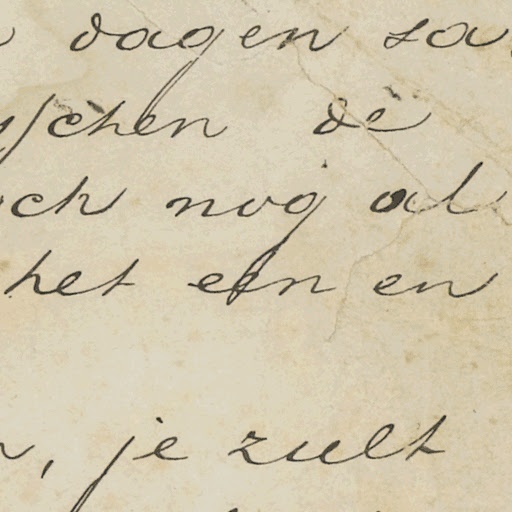 dagen sa
schen de
och nog al
het een en
, je zult